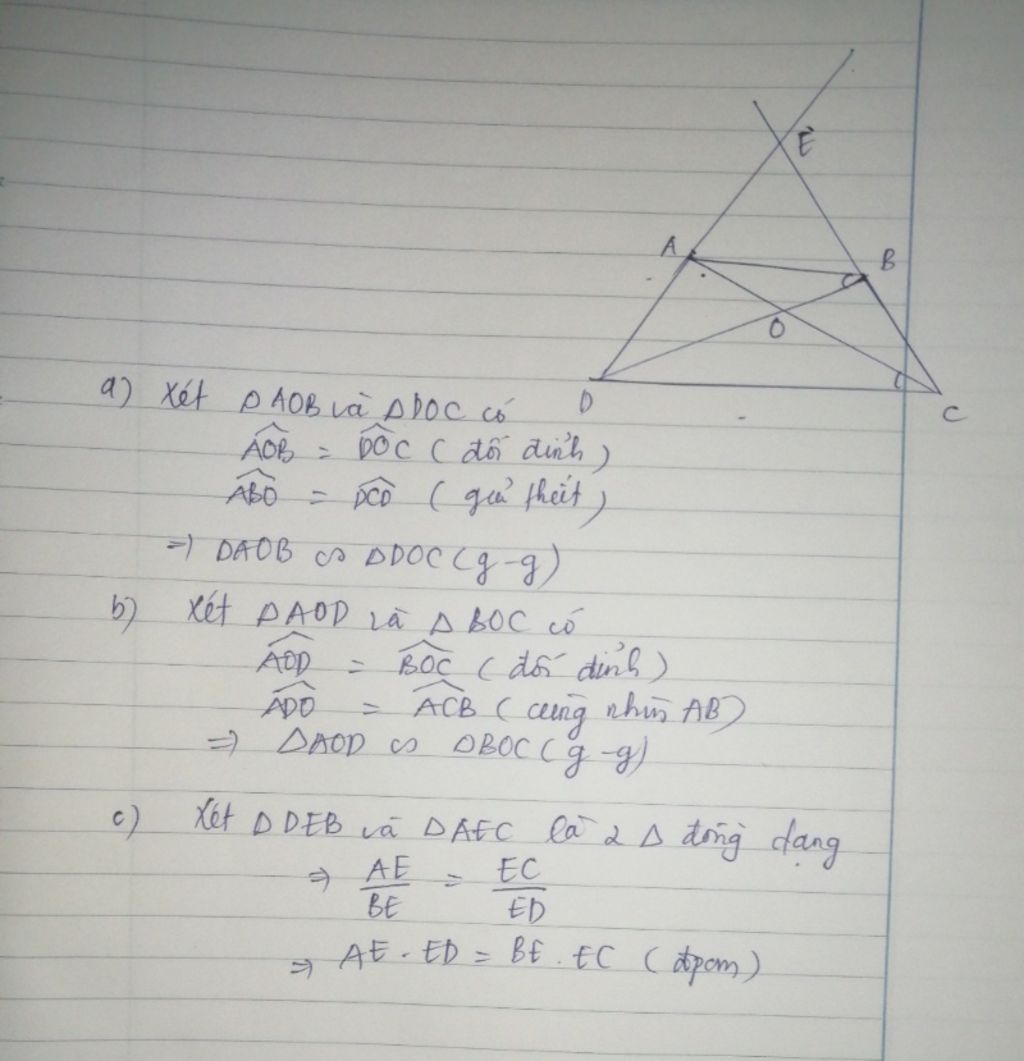 E
A
B
O
D
C
a) Xét ΔAOB và ΔDOC có
$\widehat{AOB}$ = $\widehat{DOC}$ (đối đỉnh)
$\widehat{ABO}$ = $\widehat{DCO}$ (giả thiết)
=> ΔAOB ∽ ΔDOC (g-g)
b) Xét ΔAOD và ΔBOC có
$\widehat{AOD}$ = $\widehat{BOC}$ (đối đỉnh)
$\widehat{ADO}$ = $\widehat{ACB}$ (cùng nhìn AB)
=> ΔAOD ∽ ΔBOC (g-g)
c) Xét ΔDEB và ΔAEC là 2 Δ đồng dạng
=> $\frac{AE}{BE}$ = $\frac{EC}{ED}$
=> AE . ED = BE . EC (đpcm)